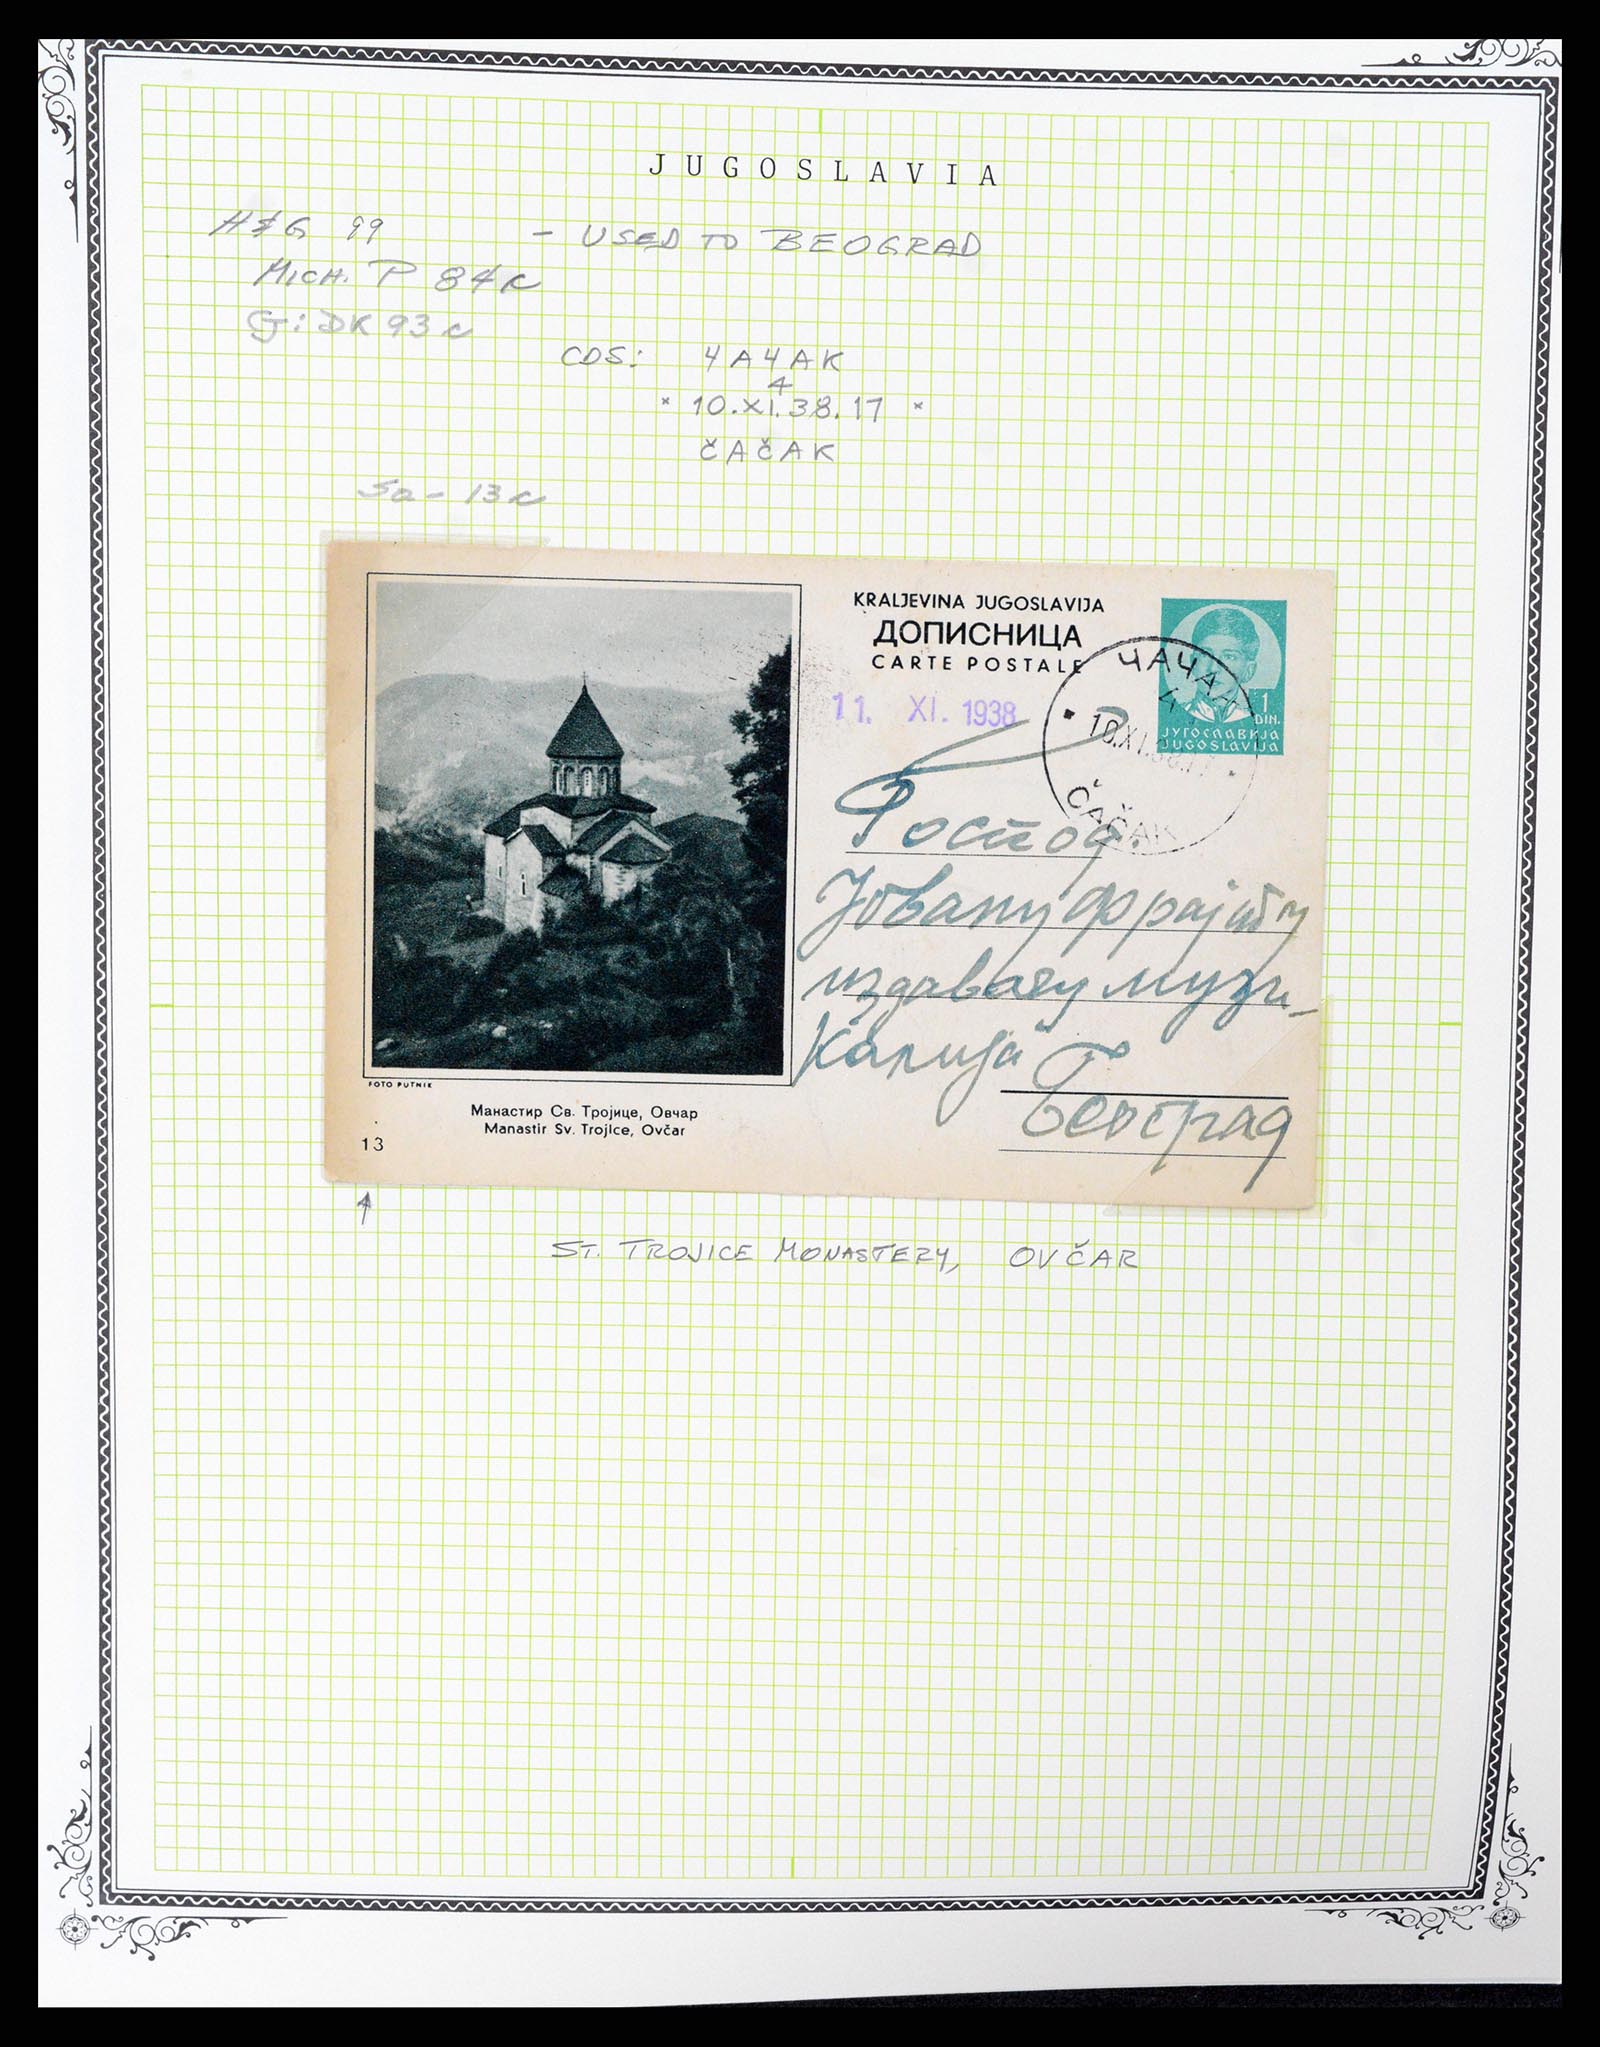 JUGOSLAVIA
H&G 99 - USED TO BEOGRAD
MICH. P 84c
DK 93c
CDS: ЧАЧАК
4
* 10.XI.38.17 *
ČAČAK
Sa-13c
KRALJEVINA JUGOSLAVIJA
ДОПИСНИЦА
CARTE POSTALE
1
DIN.
ЈУГОСЛАВИЈА
JUGOSLAVIJA
ЧАЧАК
4
10.XI.38.17
ČAČAK
11. XI. 1938
Господ.
Јовану Фрајту
издавачу музи-
калија
Београд
FOTO PUTNIK
Манастир Св. Тројице, Овчар
Manastir Sv. TrojIce, Ovčar
13
ST. TROJICE MONASTERY, OVČAR